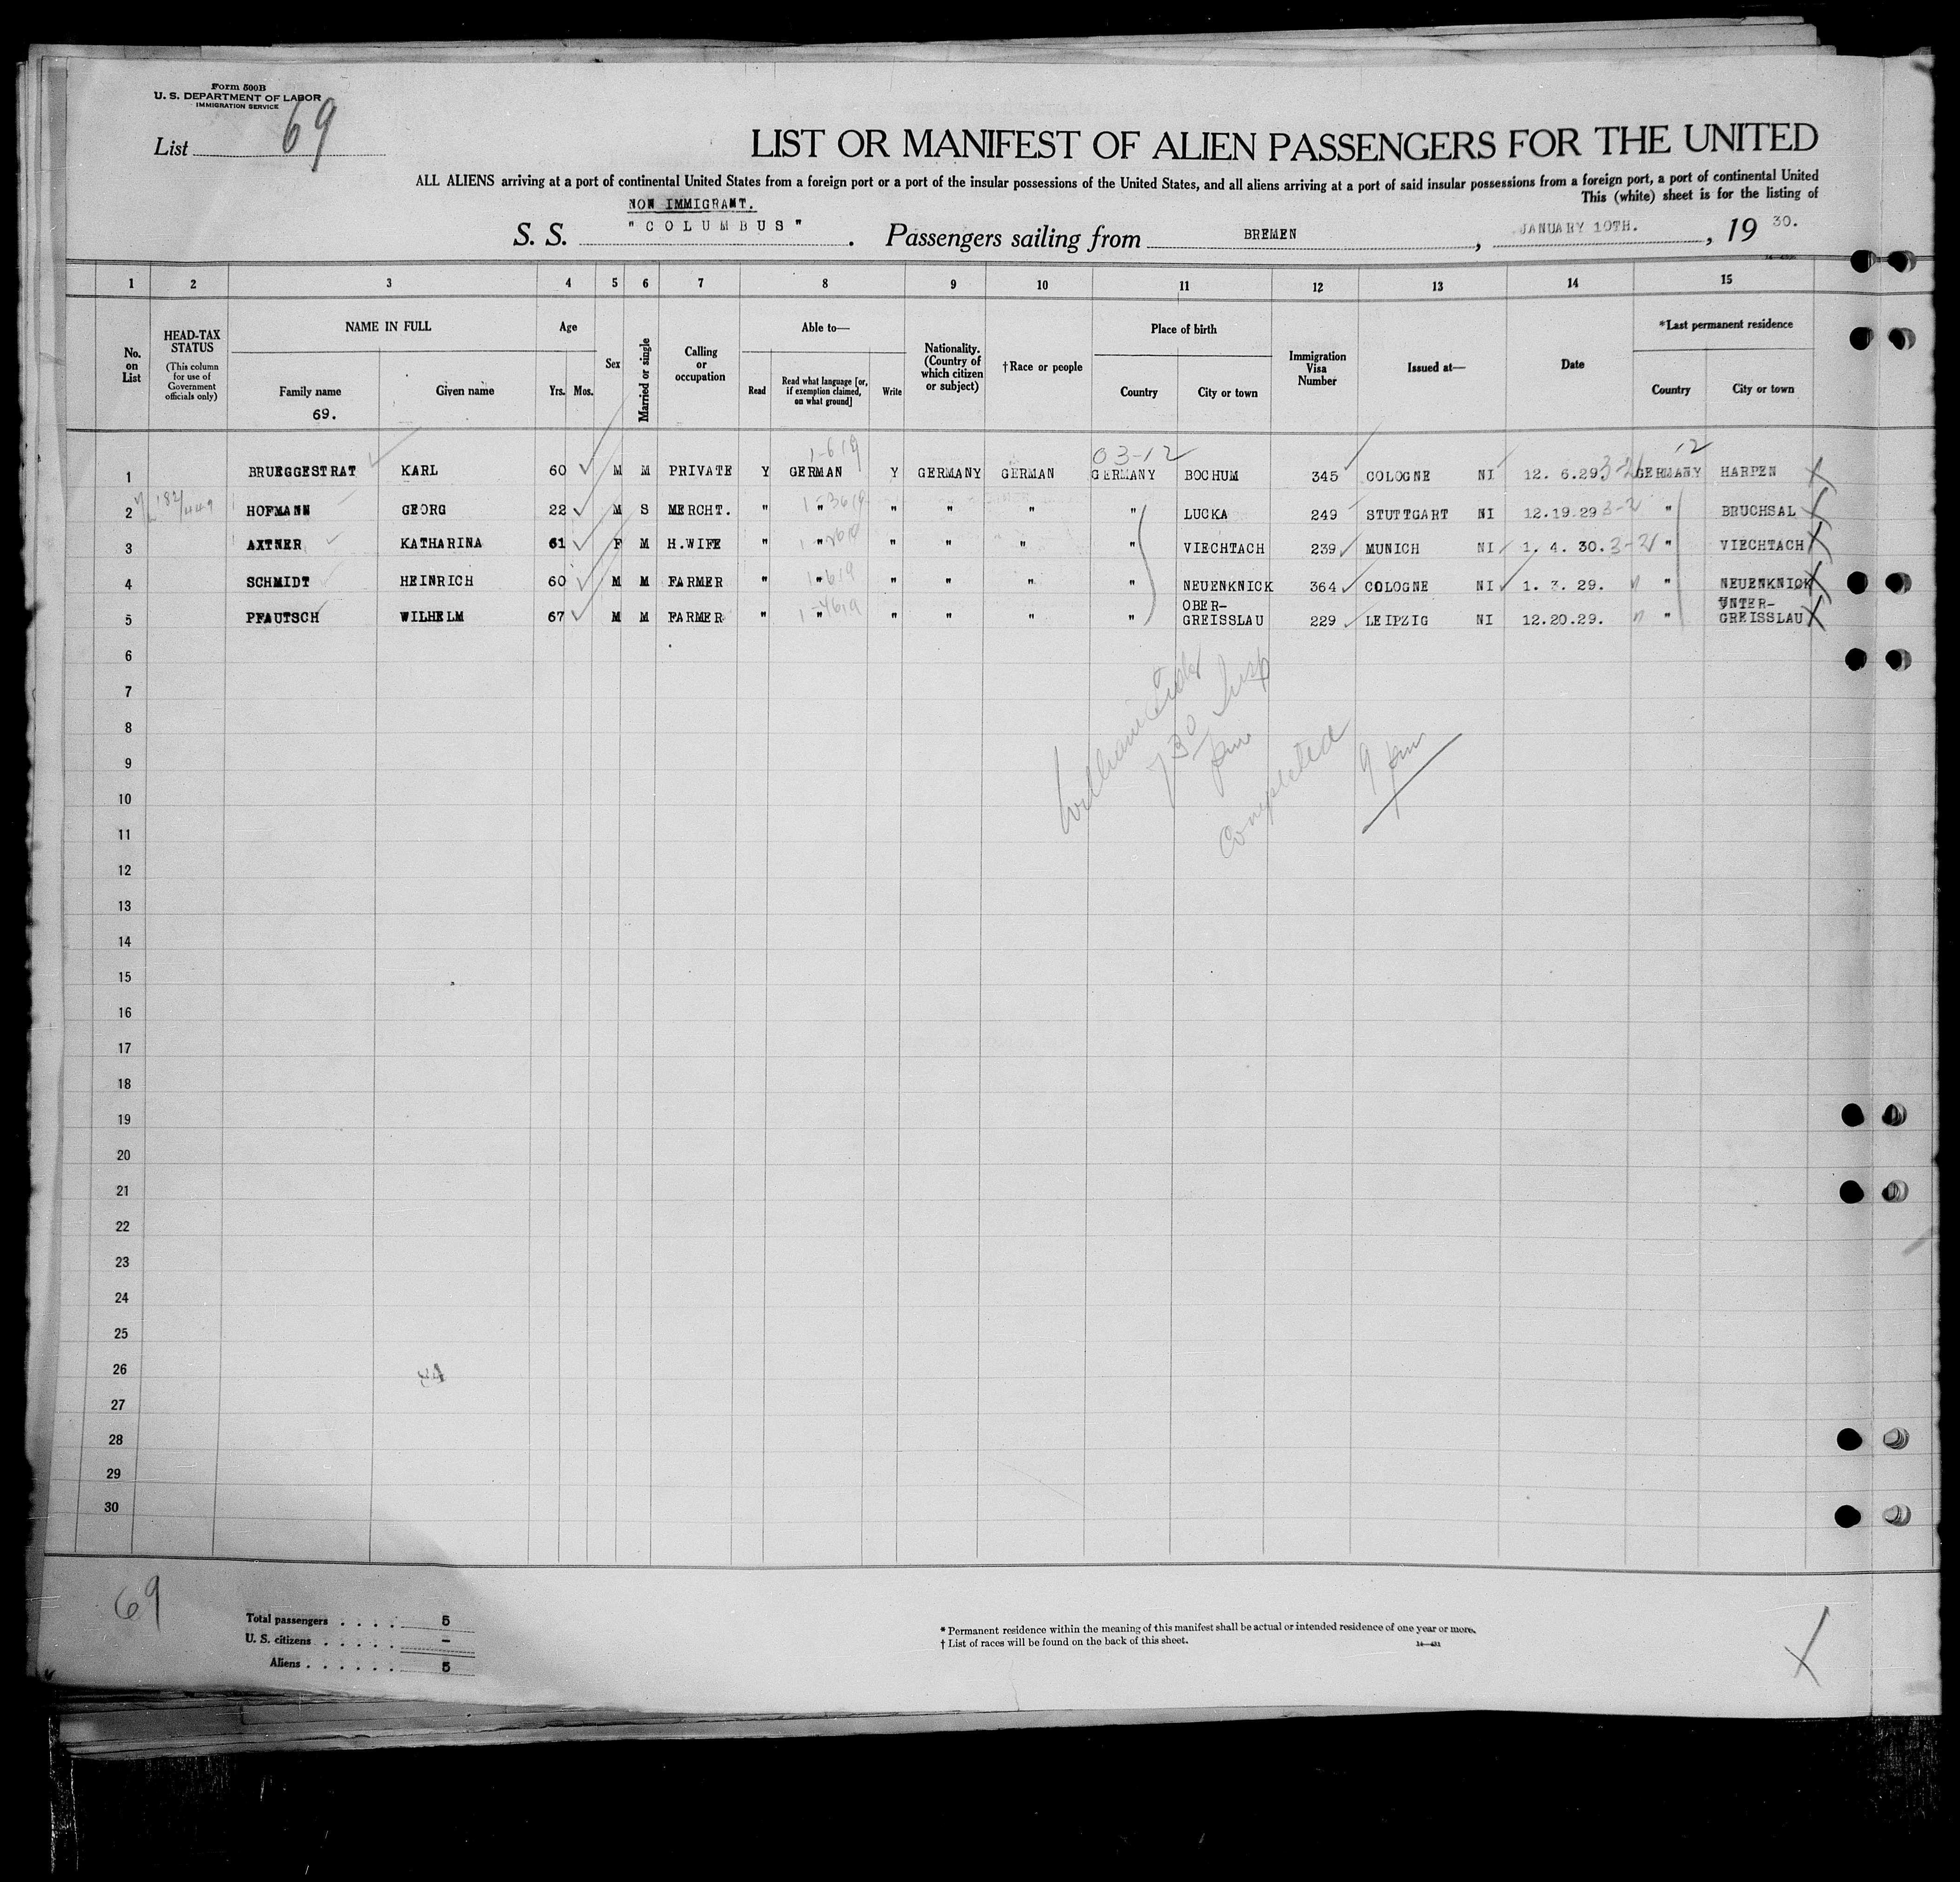 Form 500B
U. S. DEPARTMENT OF LABOR
IMMIGRATION SERVICE
List 69
LIST OR MANIFEST OF ALIEN PASSENGERS FOR THE UNITED
ALL ALIENS arriving at a port of continental United States from a foreign port or a port of the insular possessions of the United States, and all aliens arriving at a port of said insular possessions from a foreign port, a port of continental United
This (white) sheet is for the listing of
NON IMMIGRANT.
S. S. "COLUMBUS". Passengers sailing from BREMEN, JANUARY 10TH., 1930.
1 2 3 4 5 6 7 8 9 10 11 12 13 14 15
No. on List
HEAD-TAX STATUS (This column for use of Government officials only)
NAME IN FULL Family name Given name
69.
Age Yrs. Mos.
Sex
Married or single
Calling or occupation
Able to— Read Read what language [or, if exemption claimed, on what ground] Write
Nationality. (Country of which citizen or subject)
†Race or people
Place of birth Country City or town
Immigration Visa Number
Issued at—
Date
*Last permanent residence Country City or town
03-12 12
1 BRUEGGESTRAT KARL 60 M M PRIVATE Y GERMAN Y GERMANY GERMAN GERMANY BOCHUM 345 COLOGNE NI 12. 6.29. GERMANY HARPEN
2 HOFMANN GEORG 22 M S MERCHT. " " " " " " LUCKA 249 STUTTGART NI 12.19.29 " BRUCHSAL
3 AXTNER KATHARINA 61 F M H.WIFE " " " " " " VIECHTACH 239 MUNICH NI 1. 4. 30. " VIECHTACH
4 SCHMIDT HEINRICH 60 M M FARMER " " " " " " NEUENKNICK 364 COLOGNE NI 1. 3. 29. " NEUENKNICK
5 PFAUTSCH WILHELM 67 M M FARMER " " " " " " OBER-GREISSLAU 229 LEIPZIG NI 12.20.29. " UNTER-GREISSLAU
6
7
8
9
10
11
12
13
14
15
16
17
18
19
20
21
22
23
24
25
26
27
28
29
30
William Insp
7 30 pm
Completed 9 pm
69
Total passengers . . . . 5
U. S. citizens . . . . . –
Aliens . . . . . . 5
* Permanent residence within the meaning of this manifest shall be actual or intended residence of one year or more.
† List of races will be found on the back of this sheet.
14—431